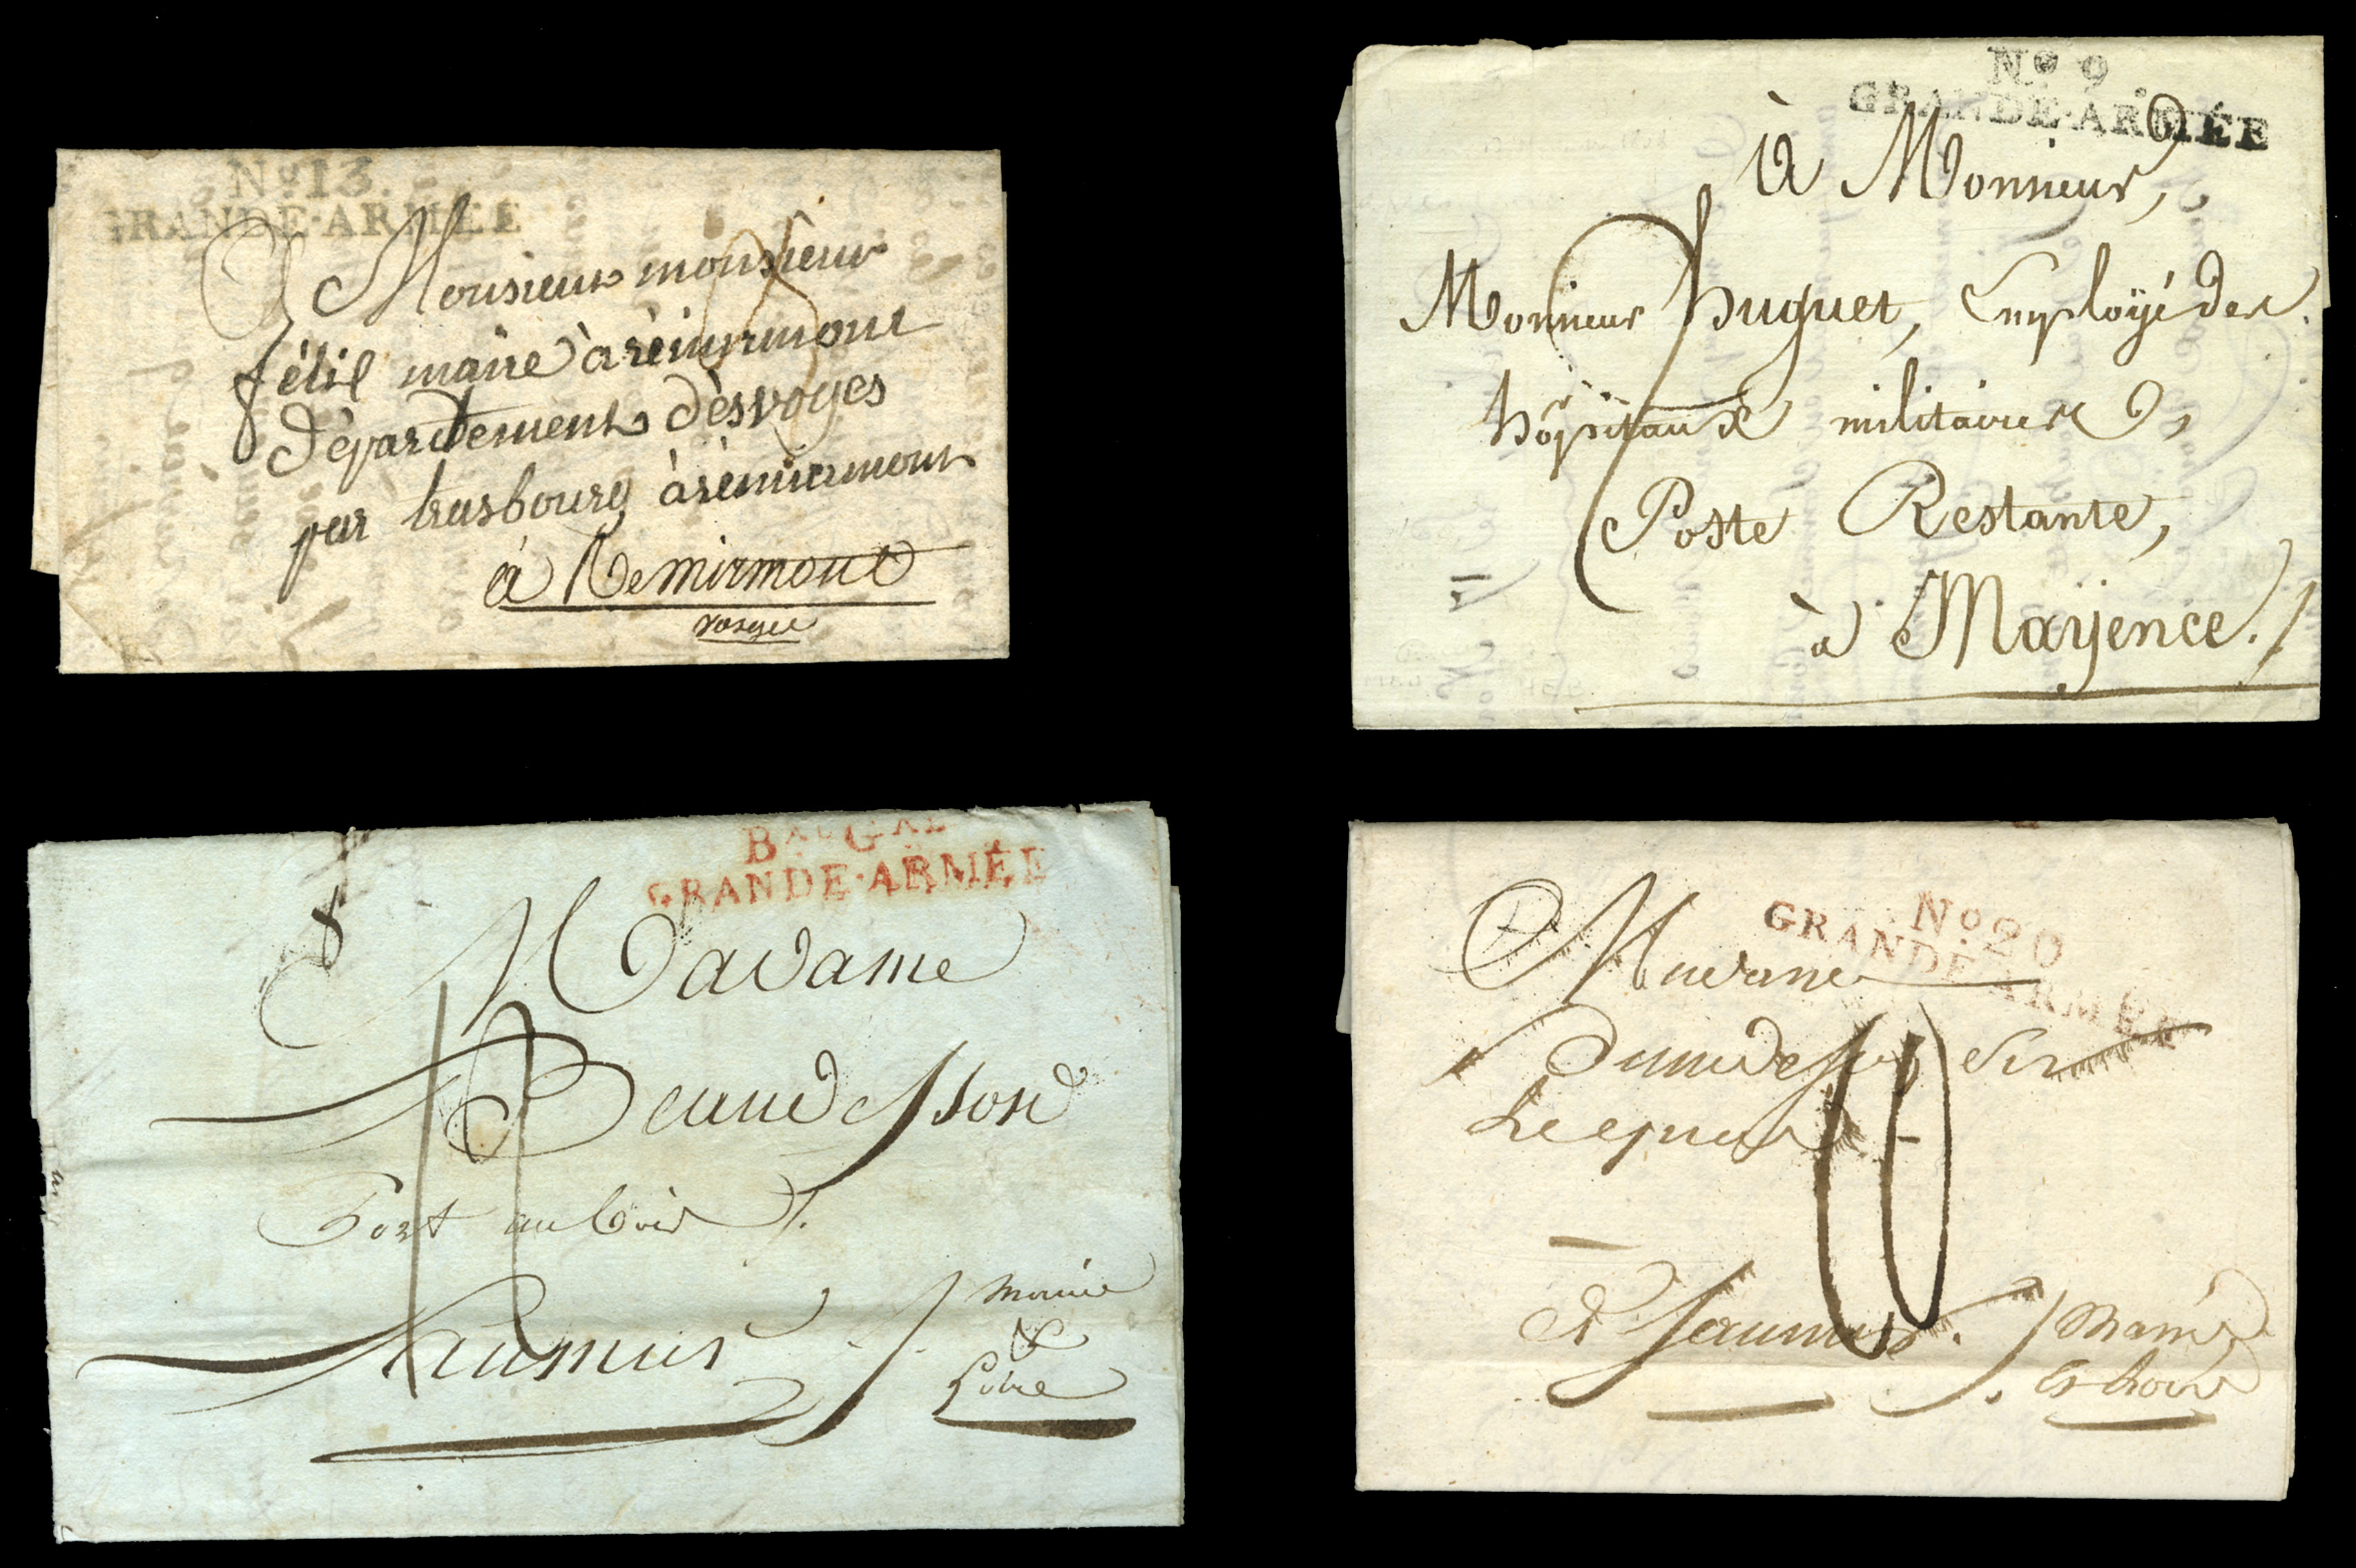 No 13.
GRANDE·ARMÉE
A Monsieur monsieur
félix maire à rémirmont
département dèsvoges
par trasbourg à rémirmont
à Remirmont
vosges
No 9.
GRANDE·ARMÉE
à Monsieur,
Monsieur huguet, Employé des
hôpitaux militaires,
Poste Restante,
à Mayence./
Bau Gal
GRANDE·ARMÉE
A Madame
Beaudesson
Port au bois
Saumur
Maine
&
Loire
No 20
GRANDE·ARMÉE
A Madame
à Saumur.
Maine
et Loire